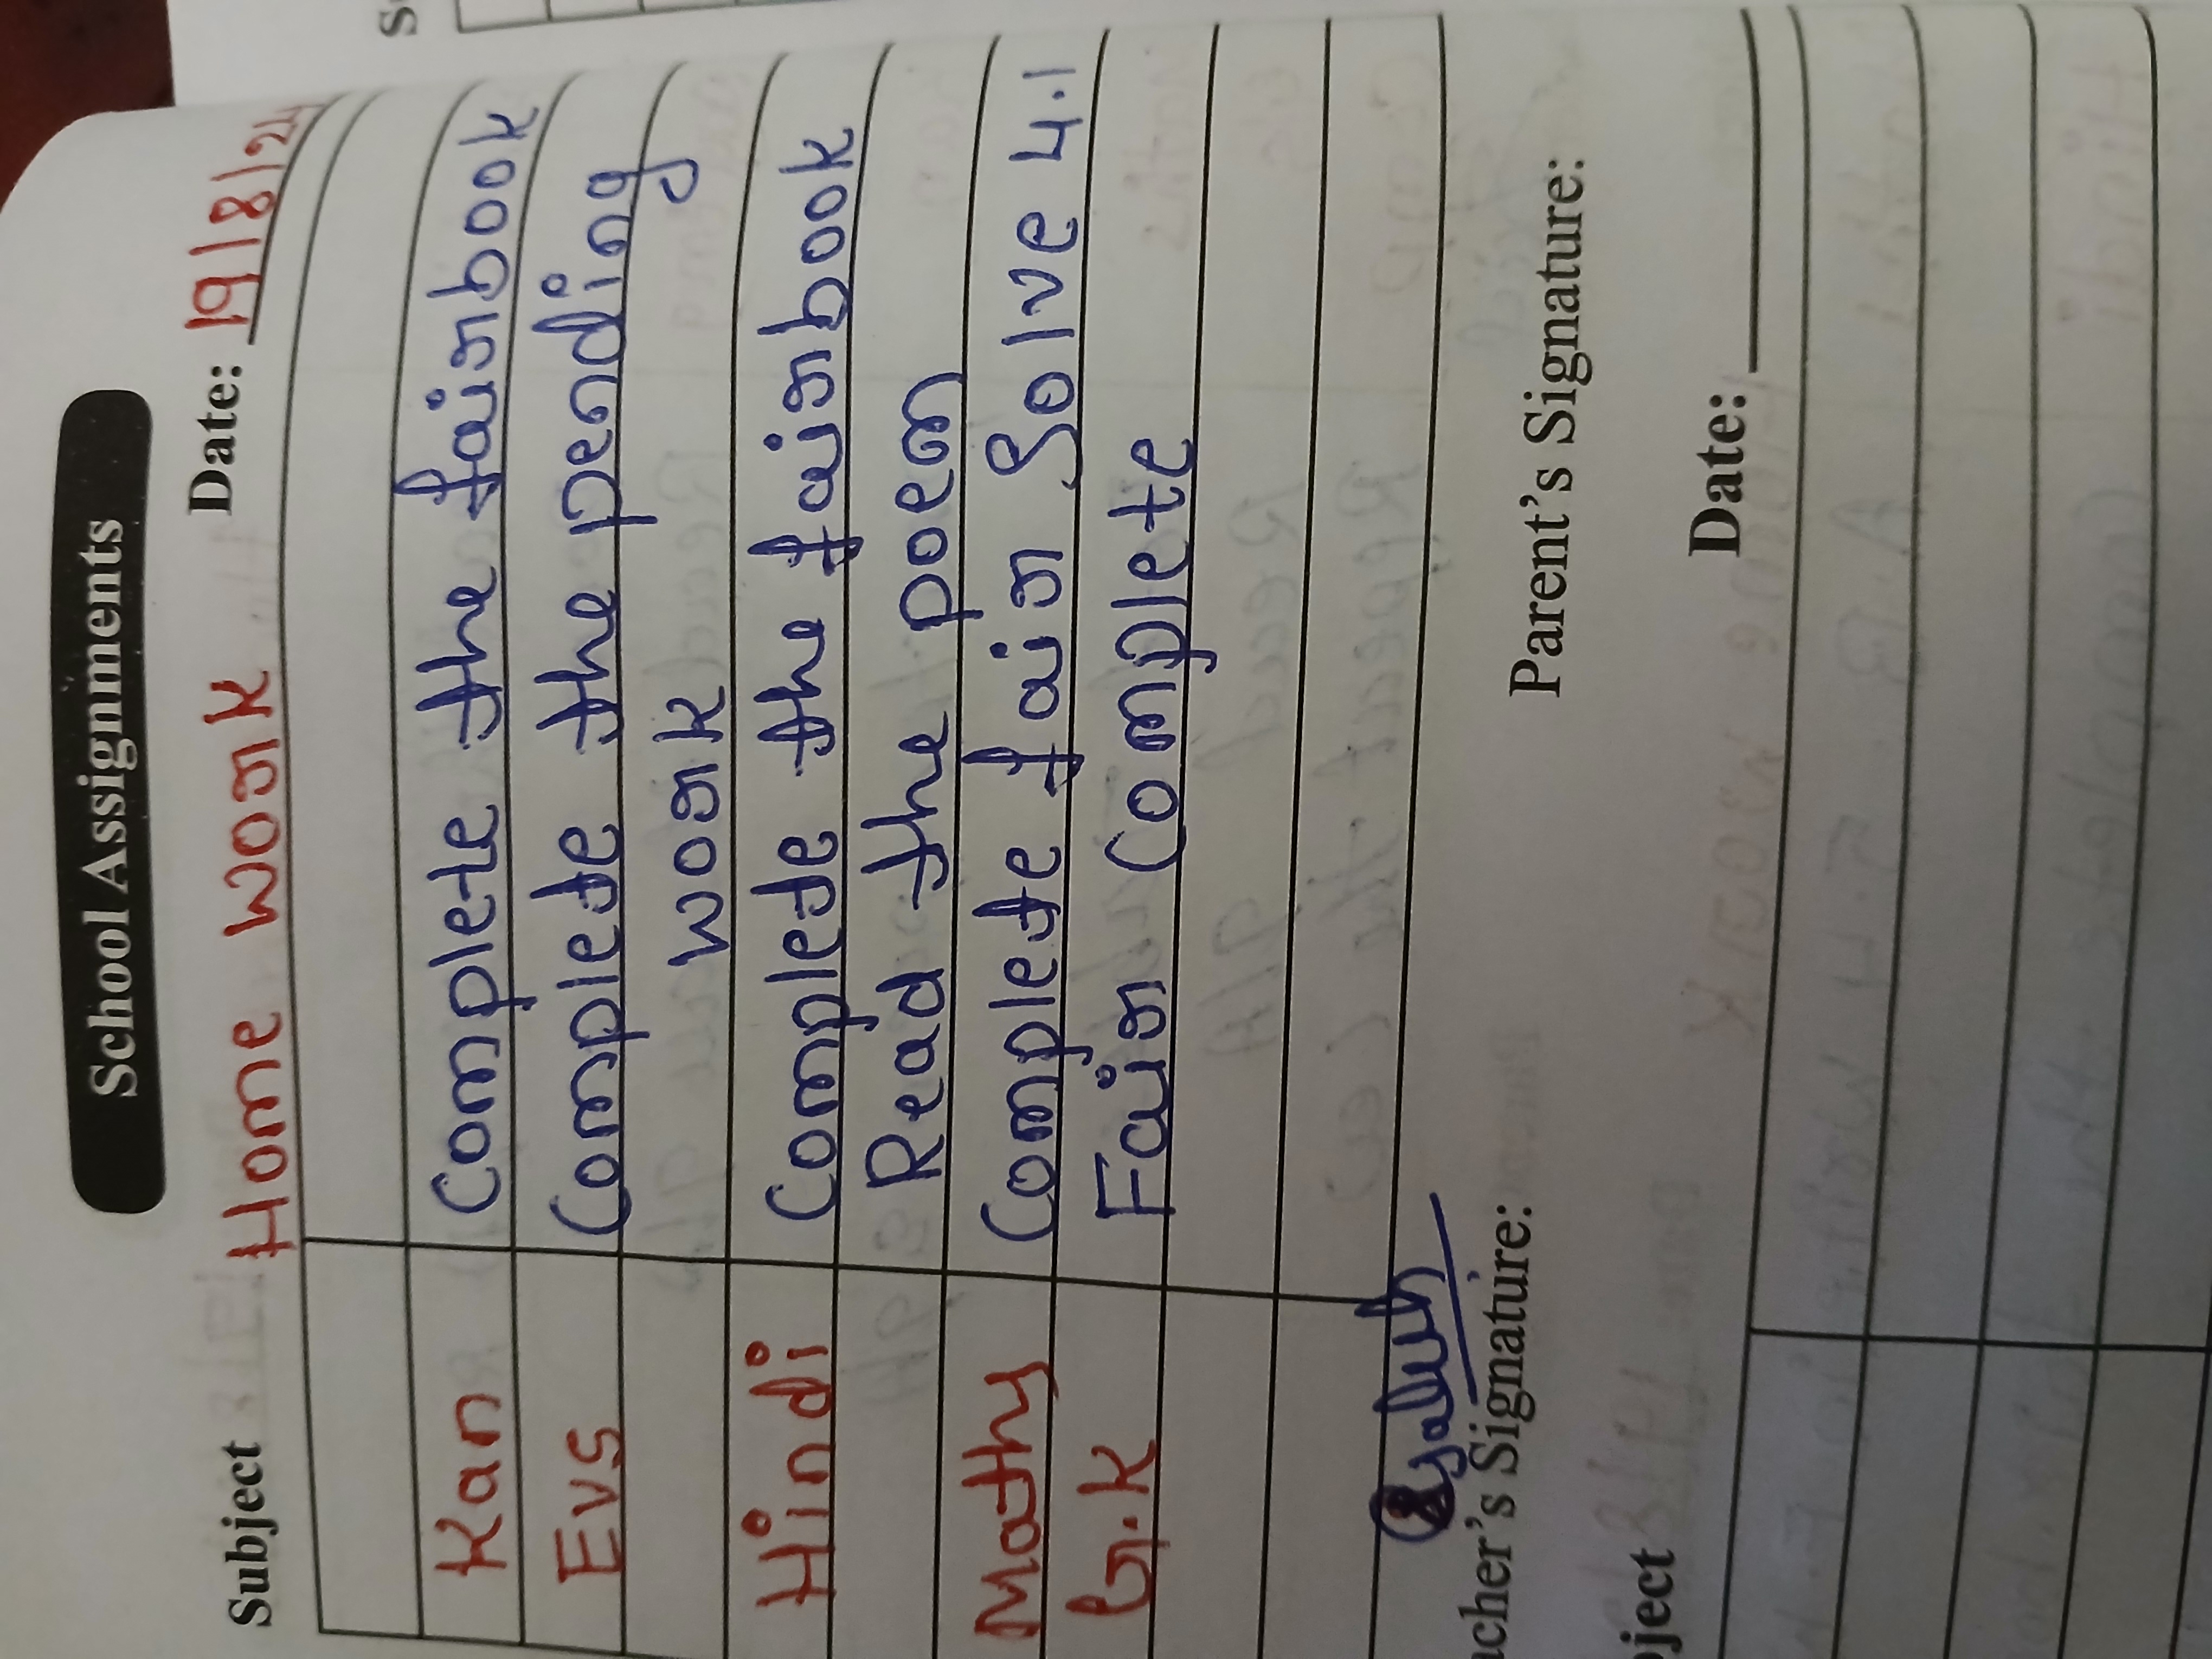 School Assignments
Subject Home work Date: 19/8/24
Kan Complete the fairbook
Evs Complete the pending
work
Hindi Complete the fairbook
Read the poem
Maths Complete fair Solve 4.1
G.K Fair Complete
acher's Signature: Parent's Signature:
bject Date: